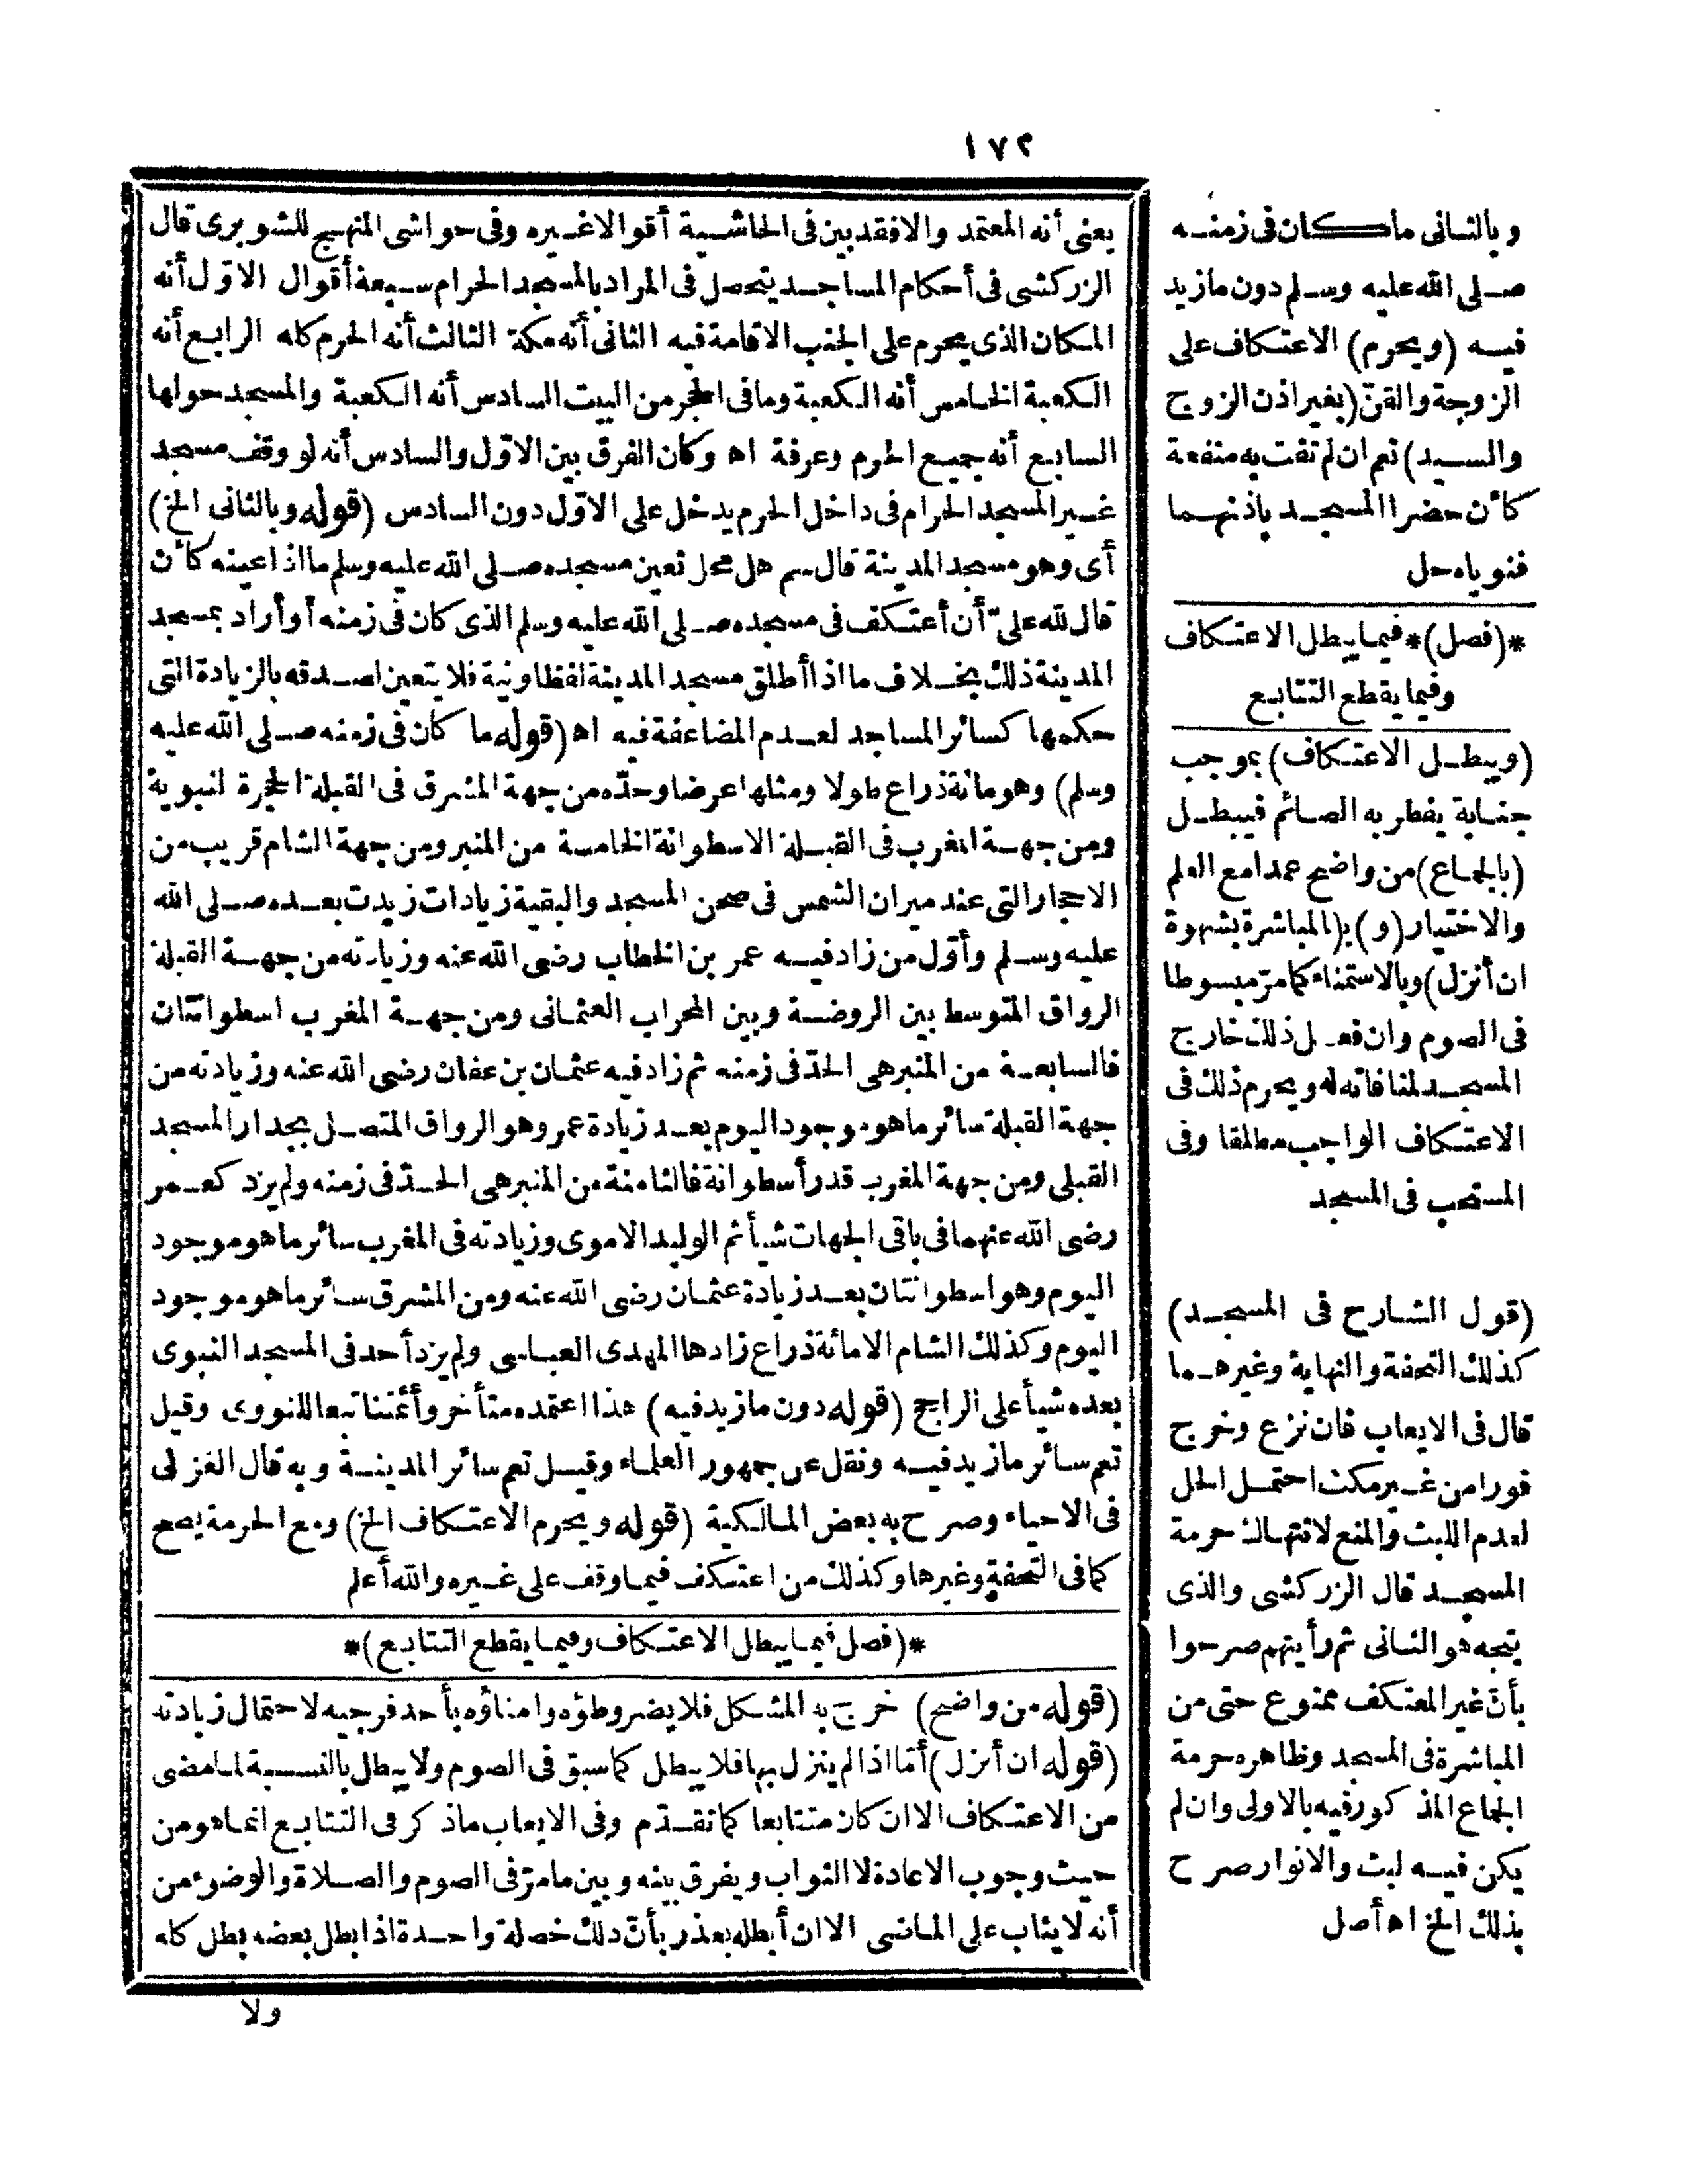 ١٧٢
وبالثانى ما كان فى زمنه
صلى الله عليه وسلم دون ما زيد
فيه (ويحرم) الاعتكاف على
الزوجة والقن (بغير اذن الزوج
والسيد) نعم ان لم تفت به منفعة
كأن حضرا المسجد باذنهما
فنوياه حل
*(فصل)* فيما يبطل الاعتكاف
وفيما يقطع التتابع
(ويبطل الاعتكاف) بموجب
جنابة يفطر به الصائم فيبطل
(بالجماع) من واضح عمدا مع العلم
والاختيار (و) ب(المباشرة بشهوة
ان أنزل) وبالاستمناء كما مرّ مبسوطا
فى الصوم وان فعل ذلك خارج
المسجد لمنافاته له ويحرم ذلك فى
الاعتكاف الواجب مطلقا وفى
المستحب فى المسجد
(قول الشارح فى المسجد)
كذلك التحفة والنهاية وغيرهما
قال فى الايعاب فان نزع وخرج
فورا من غير مكث احتمل الحل
لعدم اللبث والمنع لانتهاك حرمة
المسجد قال الزركشى والذى
يتجه هو الثانى ثم رأيتهم صرحوا
بأنّ غير المعتكف ممنوع حتى من
المباشرة فى المسجد وظاهره حرمة
الجماع المذكور فيه بالاولى وان لم
يكن فيه لبث والانوار صرح
بذلك الخ اه أصل
يعنى أنه المعتمد والافقد بين فى الحاشية أقوالا غيره وفى حواشى المنهج للشوبرى قال
الزركشى فى أحكام المساجد يتحصل فى المراد بالمسجد الحرام سبعة أقوال الاوّل أنه
المكان الذى يحرم على الجنب الاقامة فيه الثانى أنه مكة الثالث أنه الحرم كله الرابع أنه
الكعبة الخامس أنه الكعبة وما فى الحجر من البيت السادس أنه الكعبة والمسجد حولها
السابع أنه جميع الحرم وعرفة اه وكان الفرق بين الاوّل والسادس أنه لو وقف مسجد
غير المسجد الحرام فى داخل الحرم يدخل على الاوّل دون السادس (قوله وبالثانى الخ)
أى وهو مسجد المدينة قال سم هل محل تعين مسجده صلى الله عليه وسلم ما اذا عينه كأن
قال لله علىّ أن أعتكف فى مسجده صلى الله عليه وسلم الذى كان فى زمنه أو أراد بمسجد
المدينة ذلك بخلاف ما اذا أطلق مسجد المدينة لفظا ونية فلا يتعين لصدقه بالزيادة التى
حكمها كسائر المساجد لعدم المضاعفة فيه اه (قوله ما كان فى زمنه صلى الله عليه
وسلم) وهو مائة ذراع طولا ومثلها عرضا وحدّه من جهة المشرق فى القبلة الحجرة لنبوية
ومن جهة المغرب فى القبلة الاسطوانة الخامسة من المنبر ومن جهة الشام قريب من
الاحجار التى عند ميزان الشمس فى صحن المسجد والبقية زيادات زيدت بعده صلى الله
عليه وسلم وأوّل من زاد فيه عمر بن الخطاب رضى الله عنه وزيادته من جهة القبلة
الرواق المتوسط بين الروضة وبين المحراب العثمانى ومن جهة المغرب اسطوانتان
فالسابعة من المنبر هى الحدّ فى زمنه ثم زاد فيه عثمان بن عفان رضى الله عنه وزيادته من
جهة القبلة سائر ما هو موجود اليوم بعد زيادة عمر وهو الرواق المتصل بجدار المسجد
القبلى ومن جهة المغرب قدر أسطوانة فالثامنة من المنبر هى الحدّ فى زمنه ولم يزد كعمر
رضى الله عنهما فى باقى الجهات شيأ ثم الوليد الاموى وزيادته فى المغرب سائر ما هو موجود
اليوم وهو اسطوانتان بعد زيادة عثمان رضى الله عنه ومن المشرق سائر ما هو موجود
اليوم وكذلك الشام الا مائة ذراع زادها المهدى العباسى ولم يزد أحد فى المسجد النبوى
بعده شيأ على الراجح (قوله دون ما زيد فيه) هذا اعتمده متأخروأئمتنا تبعا للنووى وقيل
تعم سائر ما زيد فيه ونقل عن جمهور العلماء وقيل تعم سائر المدينة وبه قال الغزلى
فى الاحياء وصرح به بعض المالكية (قوله ويحرم الاعتكاف الخ) ومع الحرمة يصح
كما فى التحفة وغيرها وكذلك من اعتكف فيما وقف على غيره والله أعلم
*(فصل فيما يبطل الاعتكاف وفيما يقطع التتابع)*
(قوله من واضح) خرج به المشكل فلا يضر وطؤه وامناؤه بأحد فرجيه لاحتمال زيادته
(قوله ان أنزل) أمّا اذا لم ينزل بها فلا يبطل كما سبق فى الصوم ولا يبطل بالنسبة لما مضى
من الاعتكاف الا ان كان متتابعا كما تقدّم وفى الايعاب ما ذكر فى التتابع انما هو من
حيث وجوب الاعادة لا الثواب ويفرق بينه وبين ما مرّ فى الصوم والصلاة والوضوء من
أنه لا يثاب على الماضى الا ان أبطله بعذر بأنّ ذلك خصلة واحدة اذا بطل بعضه بطل كله
ولا